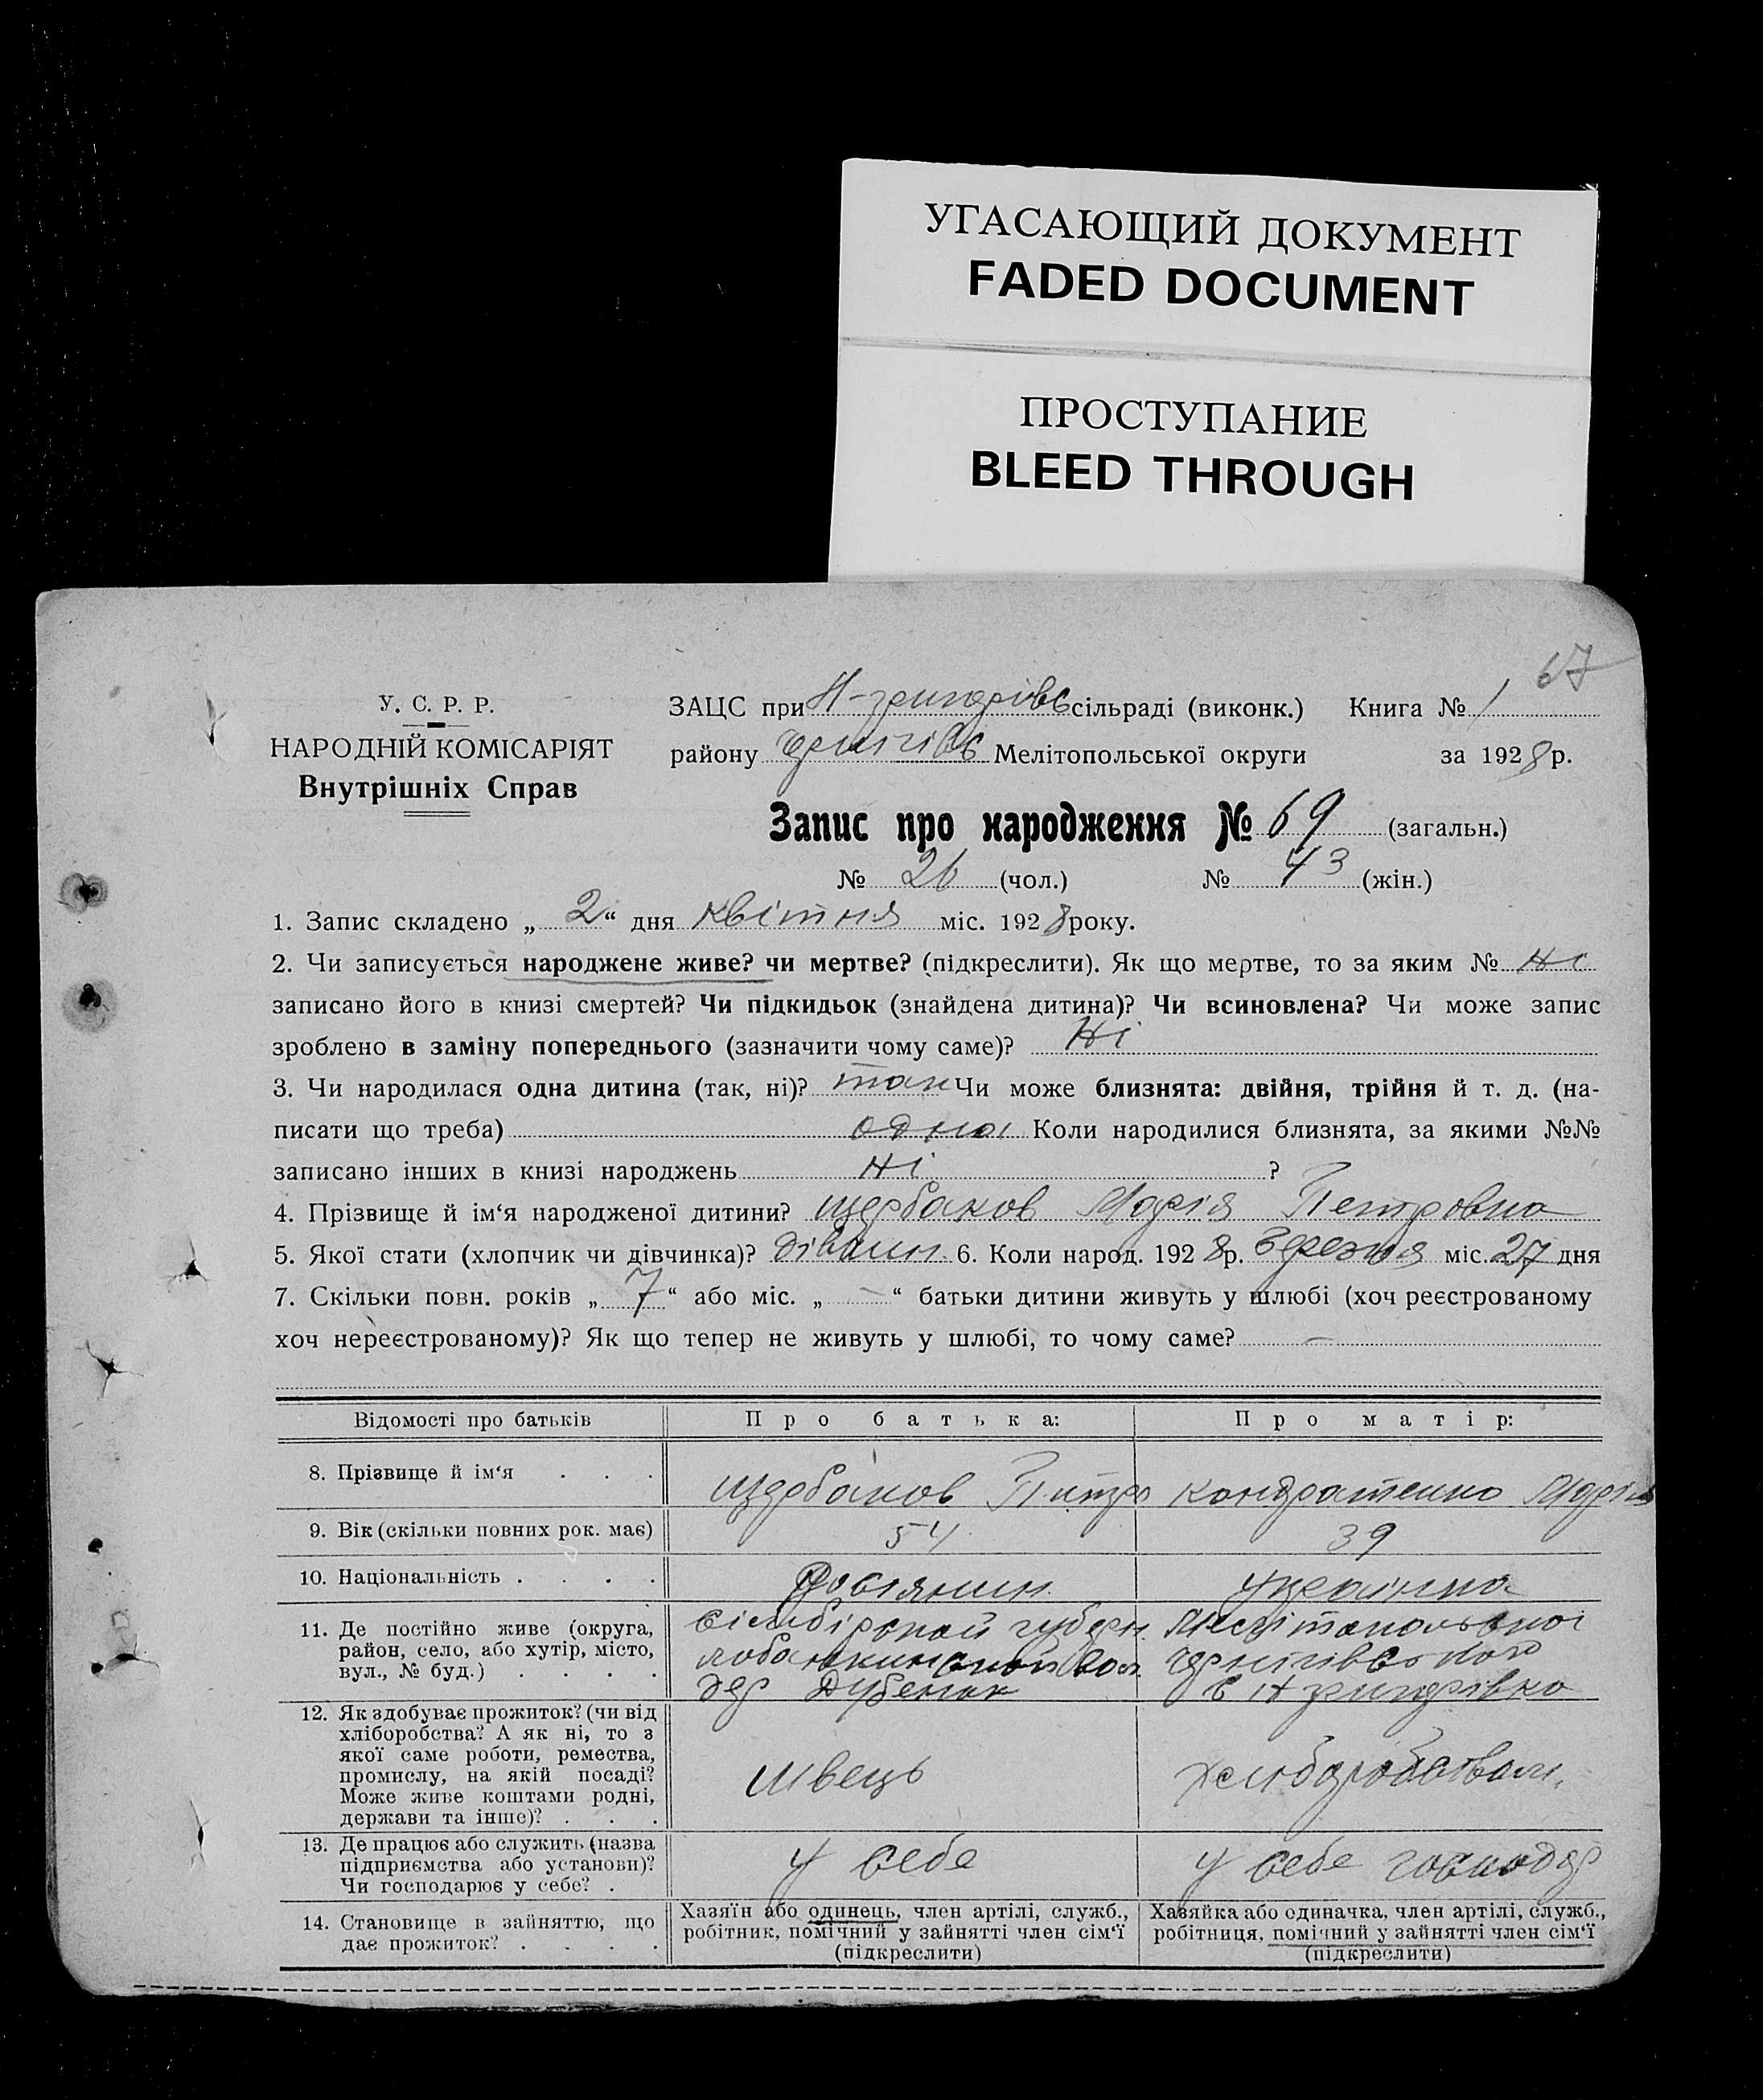 УГАСАЮЩИЙ ДОКУМЕНТ
FADED DOCUMENT
ПРОСТУПАНИЕ
BLEED THROUGH
67
У. С. Р. Р.
НАРОДНІЙ КОМІСАРІЯТ
Внутрішніх Справ
ЗАЦС при Н-григорівс сільраді (виконк.) Книга № 1
району Чернігівс Мелітопольської округи за 1928 р.
Запис про народження № 69 (загальн.)
№ 26 (чол.) № 43 (жін.)
1. Запис складено „ 2 “ дня квітня міс. 1928 року.
2. Чи записується народжене живе? чи мертве? (підкреслити). Як що мертве, то за яким № Ні
записано його в книзі смертей? Чи підкидьок (знайдена дитина)? Чи всиновлена? Чи може запис
зроблено в заміну попереднього (зазначити чому саме)? Ні
3. Чи народилася одна дитина (так, ні)? так Чи може близнята: двійня, трійня й т. д. (на-
писати що треба) одна Коли народилися близнята, за якими №№
записано інших в книзі народжень Ні ?
4. Прізвище й ім‘я народженої дитини? Щербаков Марія Петровна
5. Якої стати (хлопчик чи дівчинка)? дівчин. 6. Коли народ. 1928 р. Березня міс. 27 дня
7. Скільки повн. років „ 7 “ або міс. „ — “ батьки дитини живуть у шлюбі (хоч реєстрованому
хоч нереєстрованому)? Як що тепер не живуть у шлюбі, то чому саме? —
Відомості про батьків
Про батька:
Про матір:
8. Прізвище й ім‘я . . .
Щербаков Питро
Кондратенко Марія
9. Вік (скільки повних рок. має)
54
39
10. Національність . . . .
Росіянин
Українка
11. Де постійно живе (округа,
район, село, або хутір, місто,
вул., № буд.) . . . .
Сімбірской губерн.
вол.
дер
Мелітопольської
Чернігівського
с Н григорівка
12. Як здобуває прожиток? (чи від
хліборобства? А як ні, то з
якої саме роботи, ремества,
промислу, на якій посаді?
Може живе коштами родні,
держави та інше)? . . .
швець
13. Де працює або служить (назва
підприємства або установи)?
Чи господарює у себе? .
у себе
у себе господар
14. Становище в зайняттю, що
дає прожиток? . . . .
Хазяїн або одинець, член артілі, служб.,
робітник, помічний у зайнятті член сім‘ї
(підкреслити)
Хазяйка або одиначка, член артілі, служб.,
робітниця, помічний у зайнятті член сім‘ї
(підкреслити)